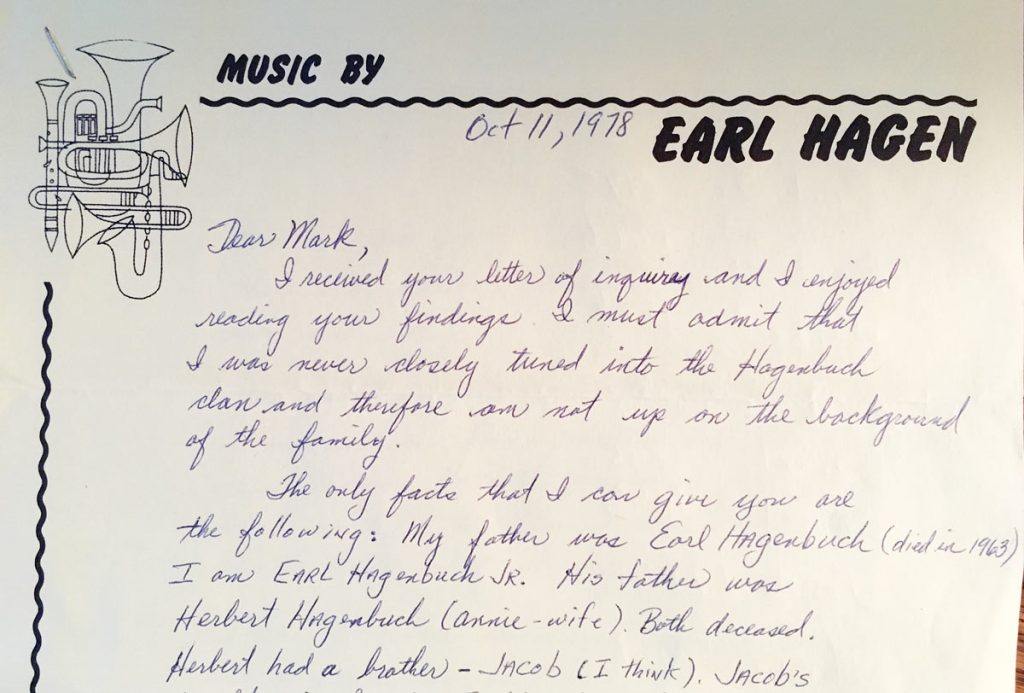 MUSIC BY
Oct 11, 1978
EARL HAGEN
Dear Mark,
I received your letter of inquiry and I enjoyed
reading your findings. I must admit that
I was never closely tuned into the Hagenbuch
clan and therefore am not up on the background
of the family.
The only facts that I can give you are
the following: My father was Earl Hagenbuch (died in 1963)
I am EARL Hagenbuch JR. His father was
Herbert Hagenbuch (Annie-wife). Both deceased.
Herbert had a brother - JACOB (I think). JACOB'S